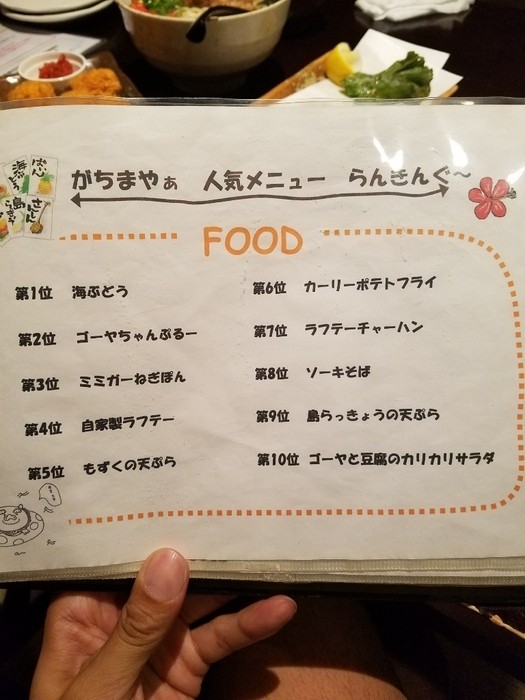 がちまやぁ 人気メニュー らんきんぐ〜
FOOD
第1位 海ぶどう
第2位 ゴーヤちゃんぷるー
第3位 ミミガーねぎぽん
第4位 自家製ラフテー
第5位 もずくの天ぷら
第6位 カーリーポテトフライ
第7位 ラフテーチャーハン
第8位 ソーキそば
第9位 島らっきょうの天ぷら
第10位 ゴーヤと豆腐のカリカリサラダ